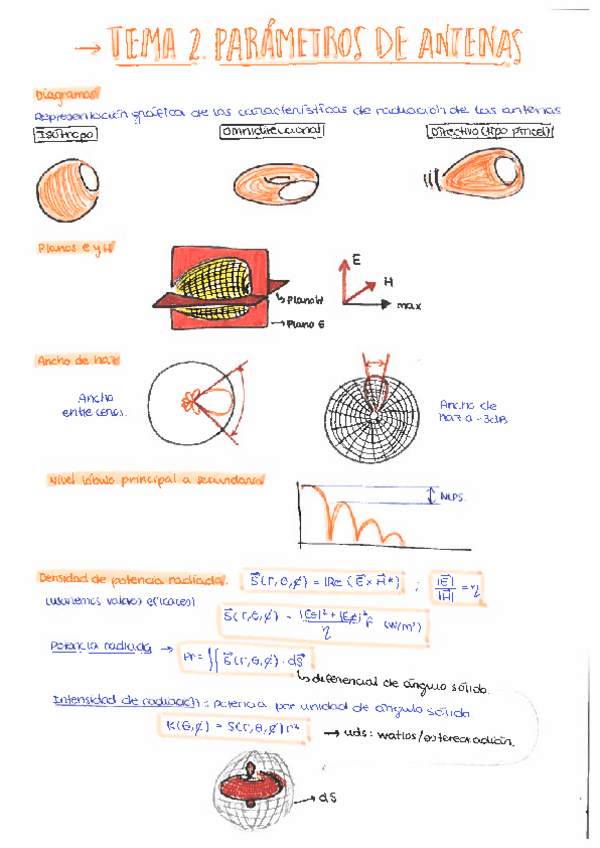 → TEMA 2. PARÁMETROS DE ANTENAS
Diagramas
Representación gráfica de las características de radiación de las antenas
Isótropo
Omnidireccional
Directivo (tipo pincel)
Planos E y H
Plano H
Plano E
E
H
max
Ancho de haz
Ancho
entre ceros.
Ancho de
haz a -3dB
Nivel lóbulo principal a secundario
NLPS.
Densidad de potencia radiada.
S⃗(r,θ,φ) = |Re (E⃗ x H⃗*) ; |E⃗|/|H⃗| = η
(usaremos valores eficaces)
S⃗(r,θ,φ) = |Eθ|²+|Eφ|²/η r̂ (W/m²)
Potencia radiada →
Pr = ∬ S⃗(r,θ,φ) · dS⃗
↳ diferencial de ángulo sólido.
Intensidad de radiación: potencia por unidad de ángulo sólido
K(θ,φ) = S(r,θ,φ) r²
→ uds: wattios/estereoradián.
→ dS